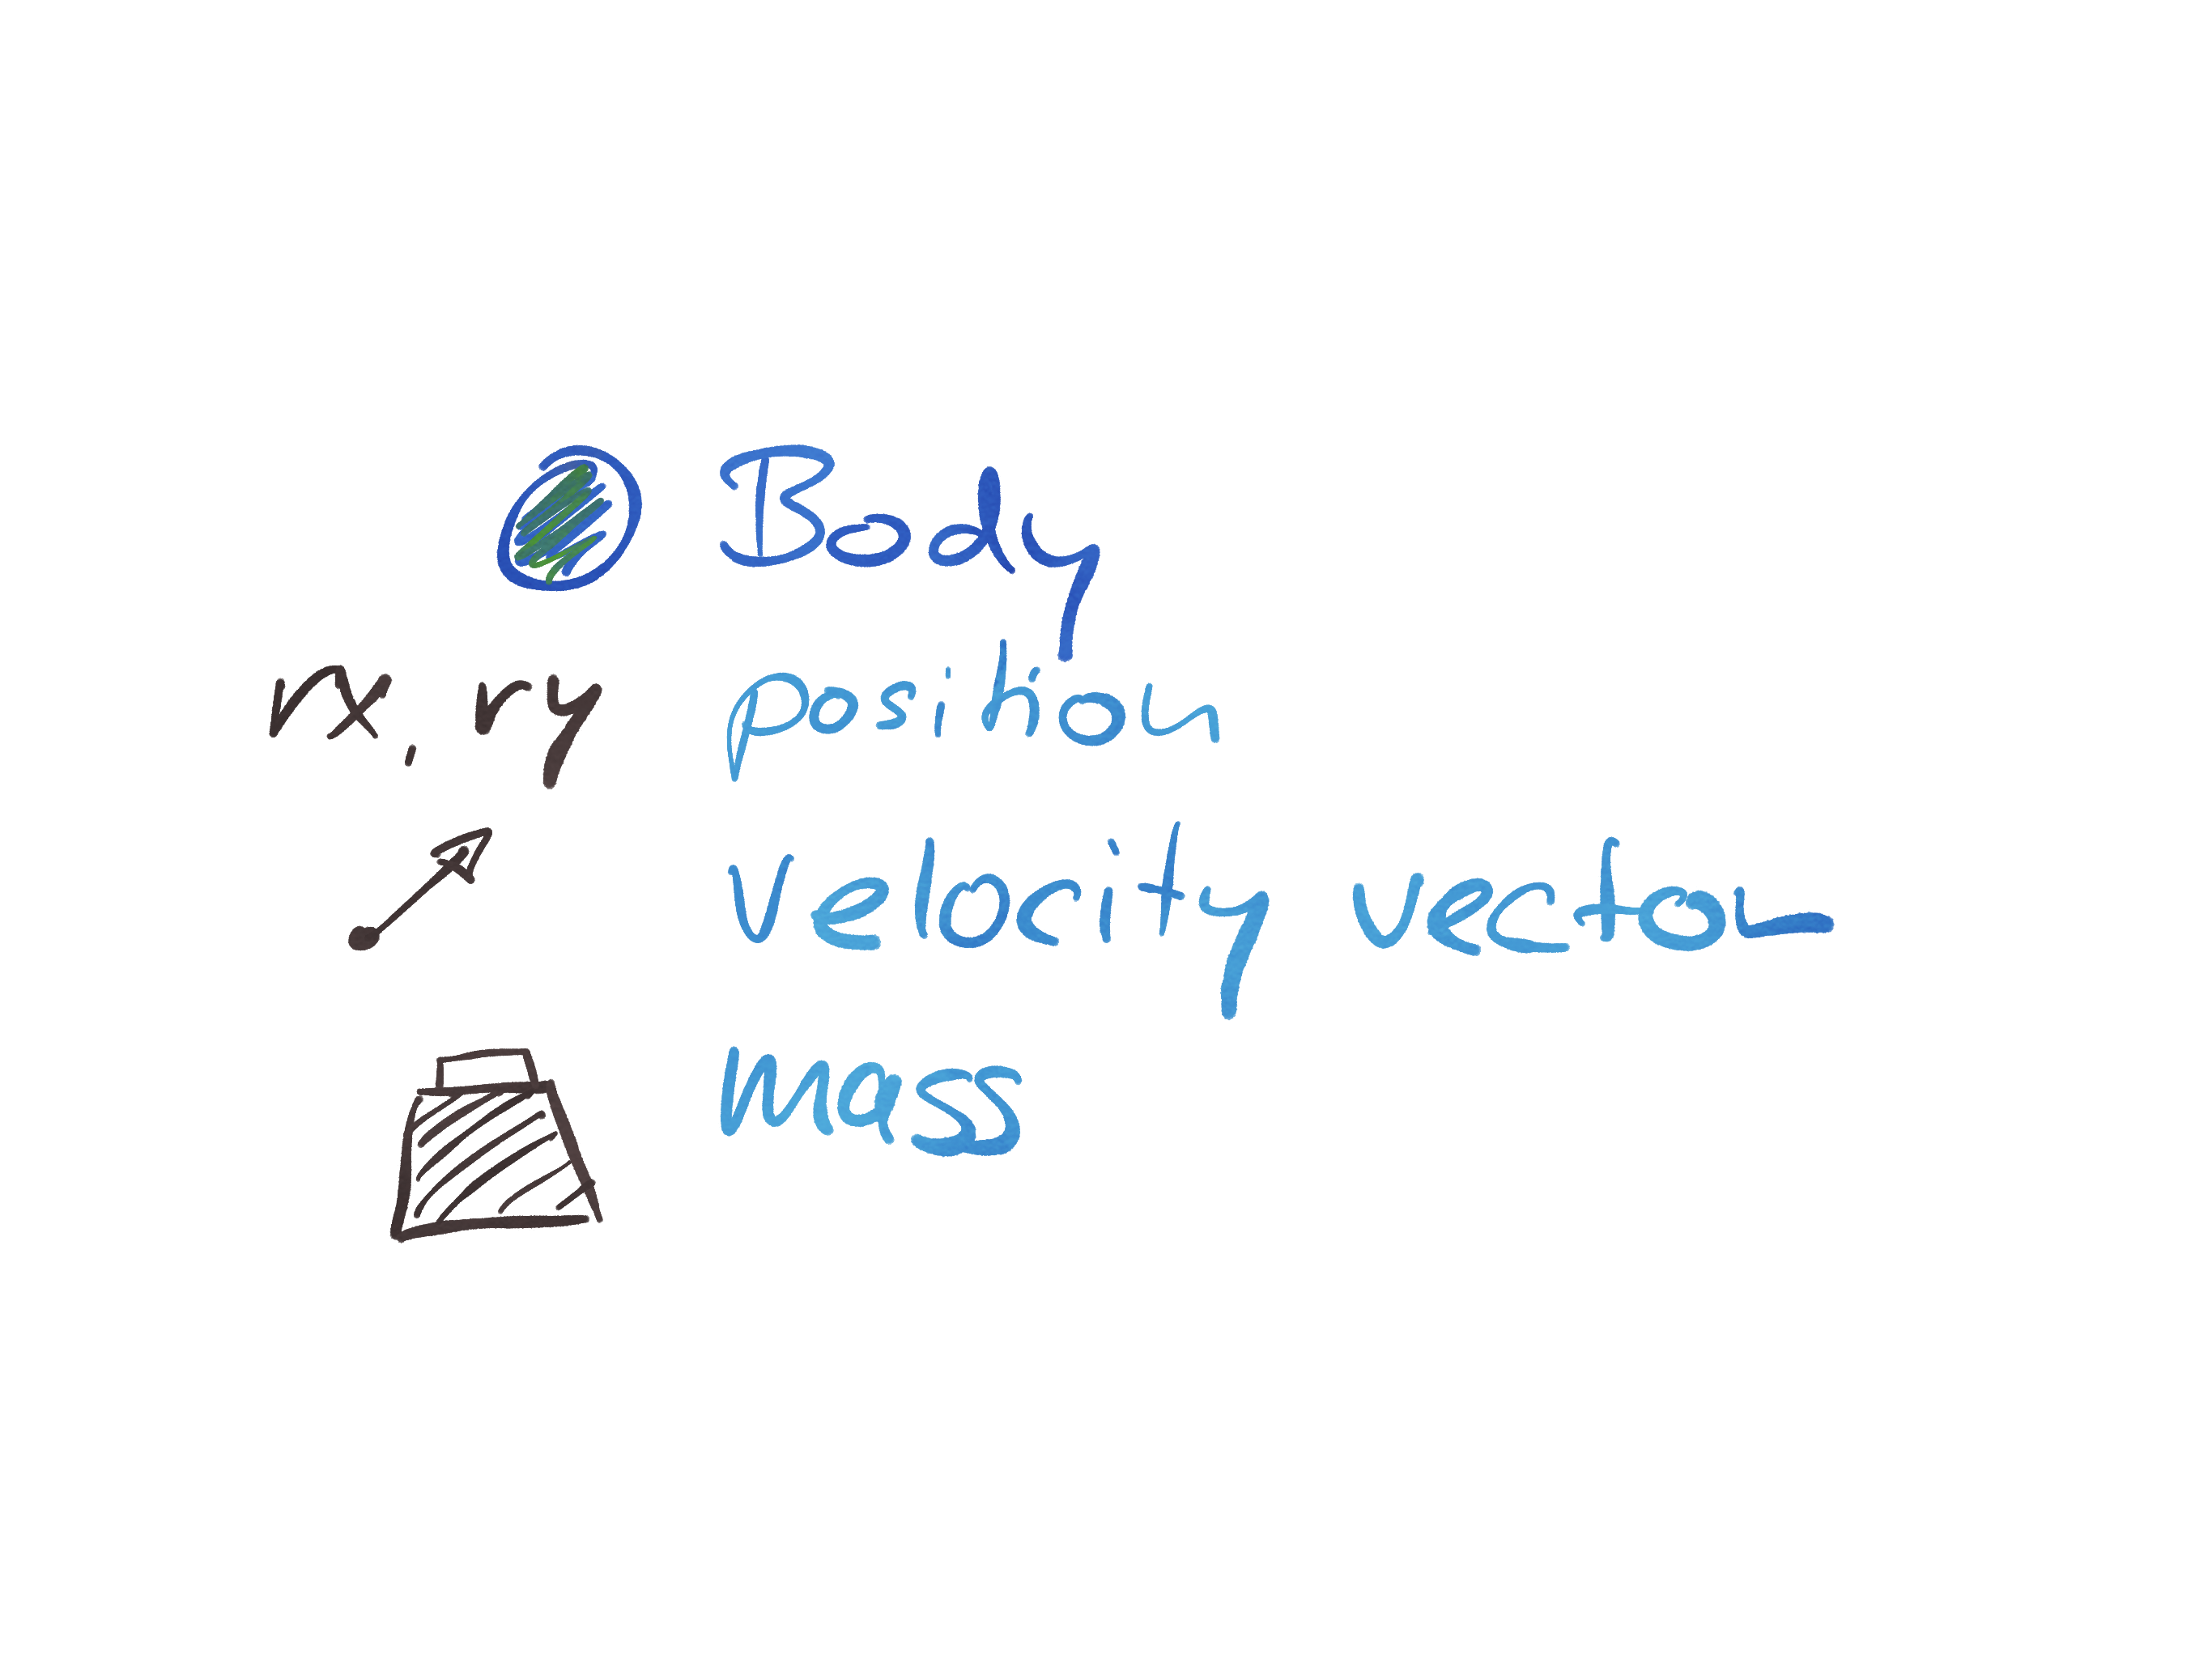 Body
rx, ry position
velocity vector
mass